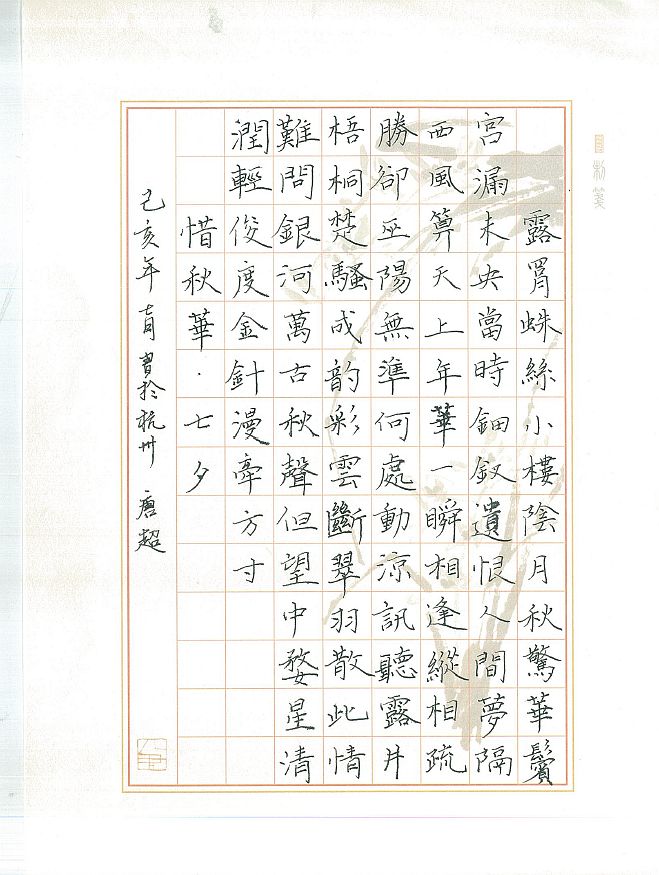 露罥蛛絲小樓陰月秋驚華鬢
宮漏未央當時鈿釵遺恨人間夢隔
西風筭天上年華一瞬相逢縱相疏
勝卻巫陽無準何處動涼訊聽露井
梧桐楚騷成韵彩雲斷翠羽散此情
難問銀河萬古秋聲但望中婺星清
潤輕俊度金針漫牽方寸
惜秋華·七夕
己亥年七月書於杭州 唐超